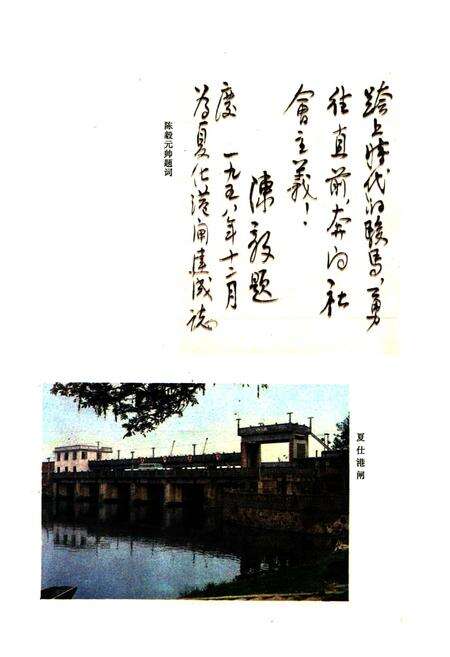 跨上时代的駿馬，勇
往直前，奔向社
會主義！
陳毅題
為夏仕港闸建成誌
慶 一九五八年十二月
陈毅元帅题词
夏仕港闸